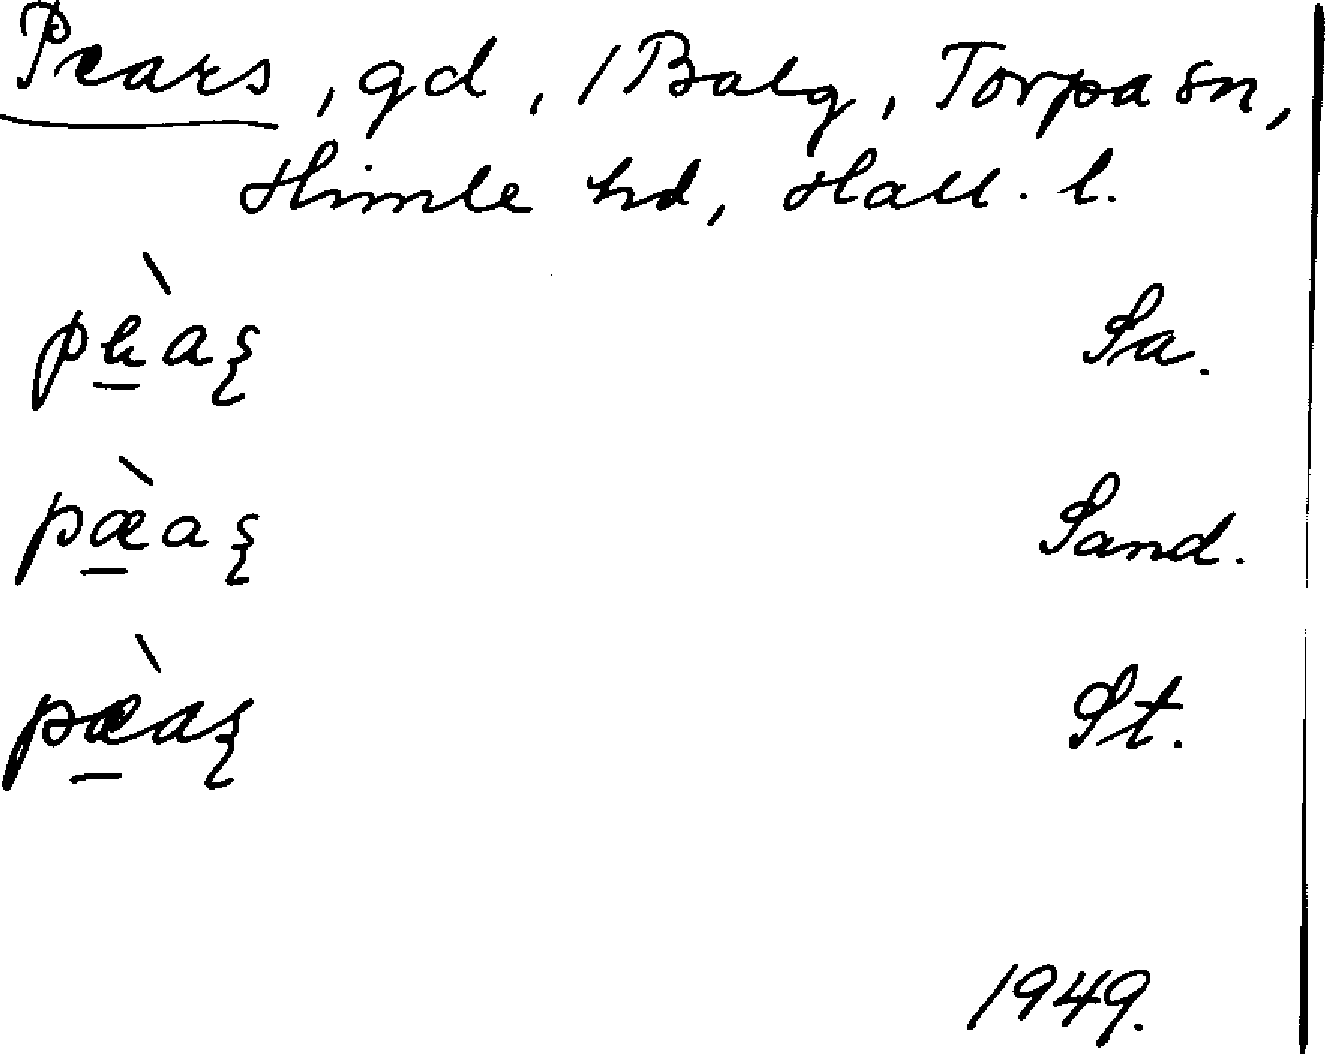 Pears, gd, 1 Balg, Torpa sn,
Himle hd, Hall. l.
pèaș Sa.
pæ̀aș Sand.
pæ̀aș St.
1949.